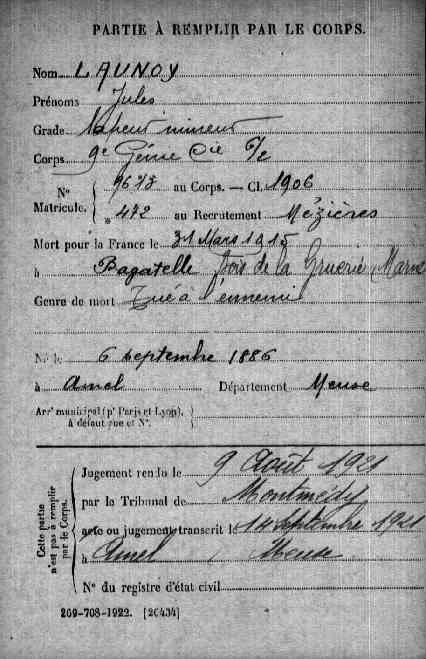 PARTIE À REMPLIR PAR LE CORPS.
Nom LAUNOY
Prénoms Jules
Grade Sapeur mineur
Corps 9e Génie Cie
N° Matricule. 9673 au Corps. — Cl. 1906
472 au Recrutement Mézières
Mort pour la France le 31 Mars 1915
à Bagatelle Bois de la Gruerie Marne
Genre de mort Tué à l'ennemi
Né le 6 septembre 1886
à Amel Département Meuse
Arr' municipal (p' Paris et Lyon),
à défaut rue et N°.
Cette partie n'est pas à remplir par le Corps.
Jugement rendu le 9 Août 1921
par le Tribunal de Montmédy
acte ou jugement transcrit le 14 septembre 1921
à Amel Meuse
N° du registre d'état civil
269-708-1922. [26434]